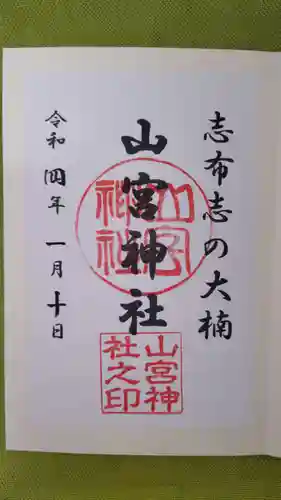 志布志の大楠
山宮神社
山宮神社
山宮神社之印
令和四年一月十日